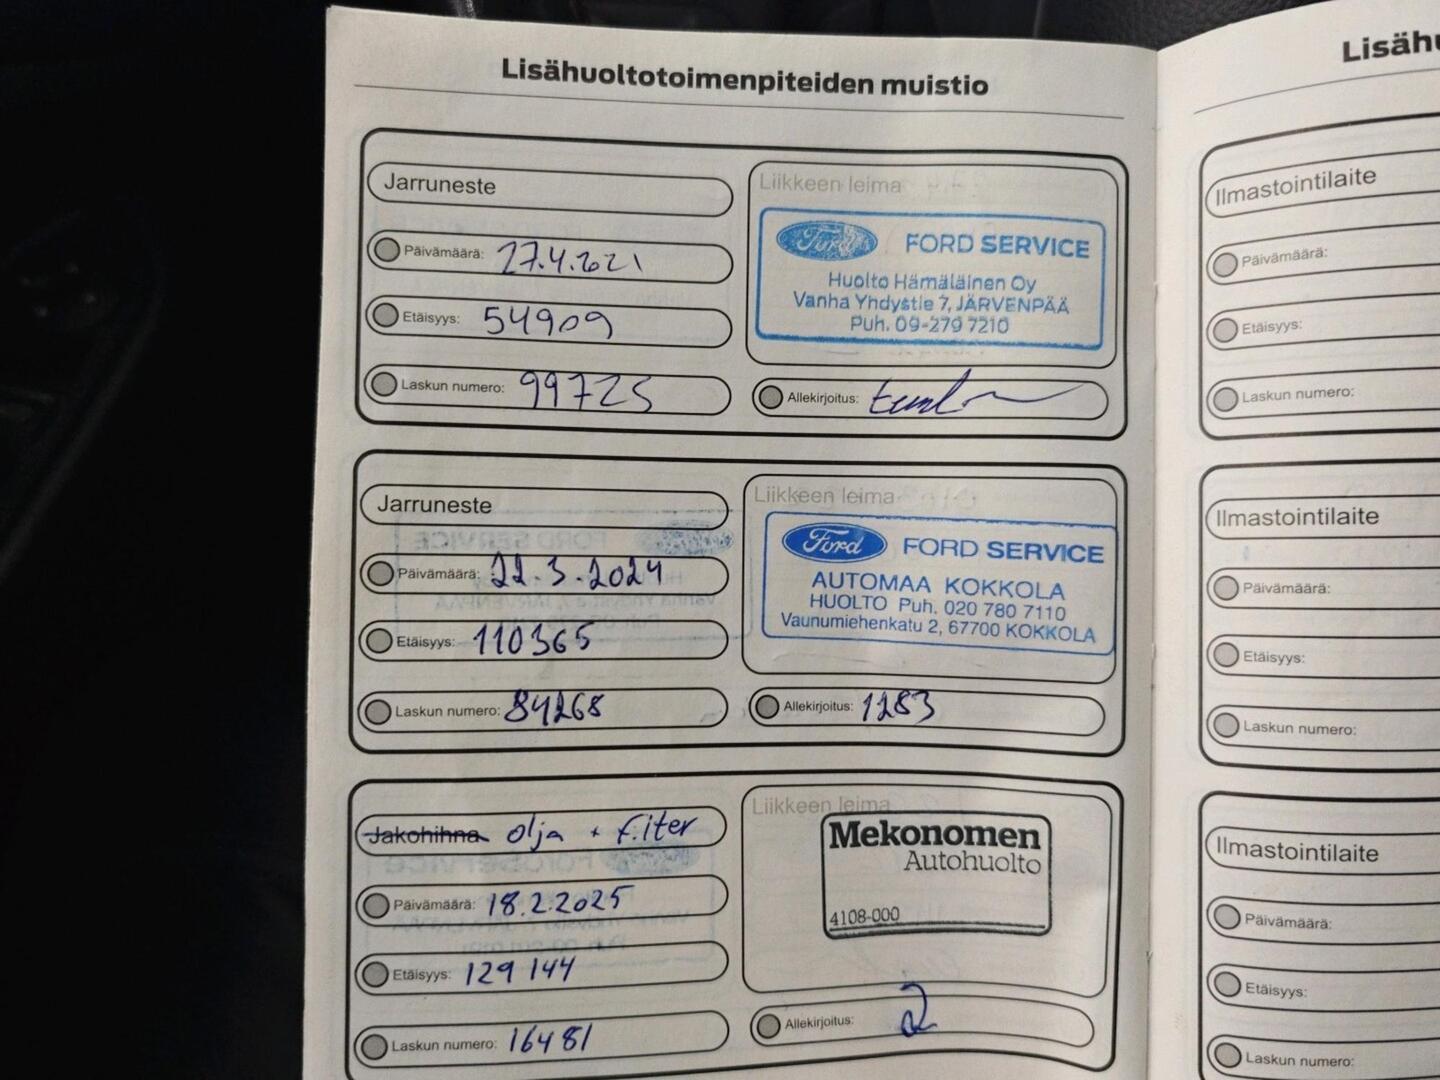 Lisähuoltotoimenpiteiden muistio
Jarruneste
Päivämäärä: 27.4.2021
Etäisyys: 54909
Laskun numero: 99725
Liikkeen leima
Ford FORD SERVICE
Huolto Hämäläinen Oy
Vanha Yhdystie 7, JÄRVENPÄÄ
Puh. 09-279 7210
Allekirjoitus:
Jarruneste
Päivämäärä: 22.3.2024
Etäisyys: 110365
Laskun numero: 84268
Liikkeen leima
Ford FORD SERVICE
AUTOMAA KOKKOLA
HUOLTO Puh. 020 780 7110
Vaunumiehenkatu 2, 67700 KOKKOLA
Allekirjoitus: 1283
Jakohihna olja + filter
Päivämäärä: 18.2.2025
Etäisyys: 129 144
Laskun numero: 16481
Liikkeen leima
Mekonomen
Autohuolto
4108-000
Allekirjoitus:
Ilmastointilaite
Päivämäärä:
Etäisyys:
Laskun numero:
Ilmastointilaite
Päivämäärä:
Etäisyys:
Laskun numero:
Ilmastointilaite
Päivämäärä:
Etäisyys:
Laskun numero: